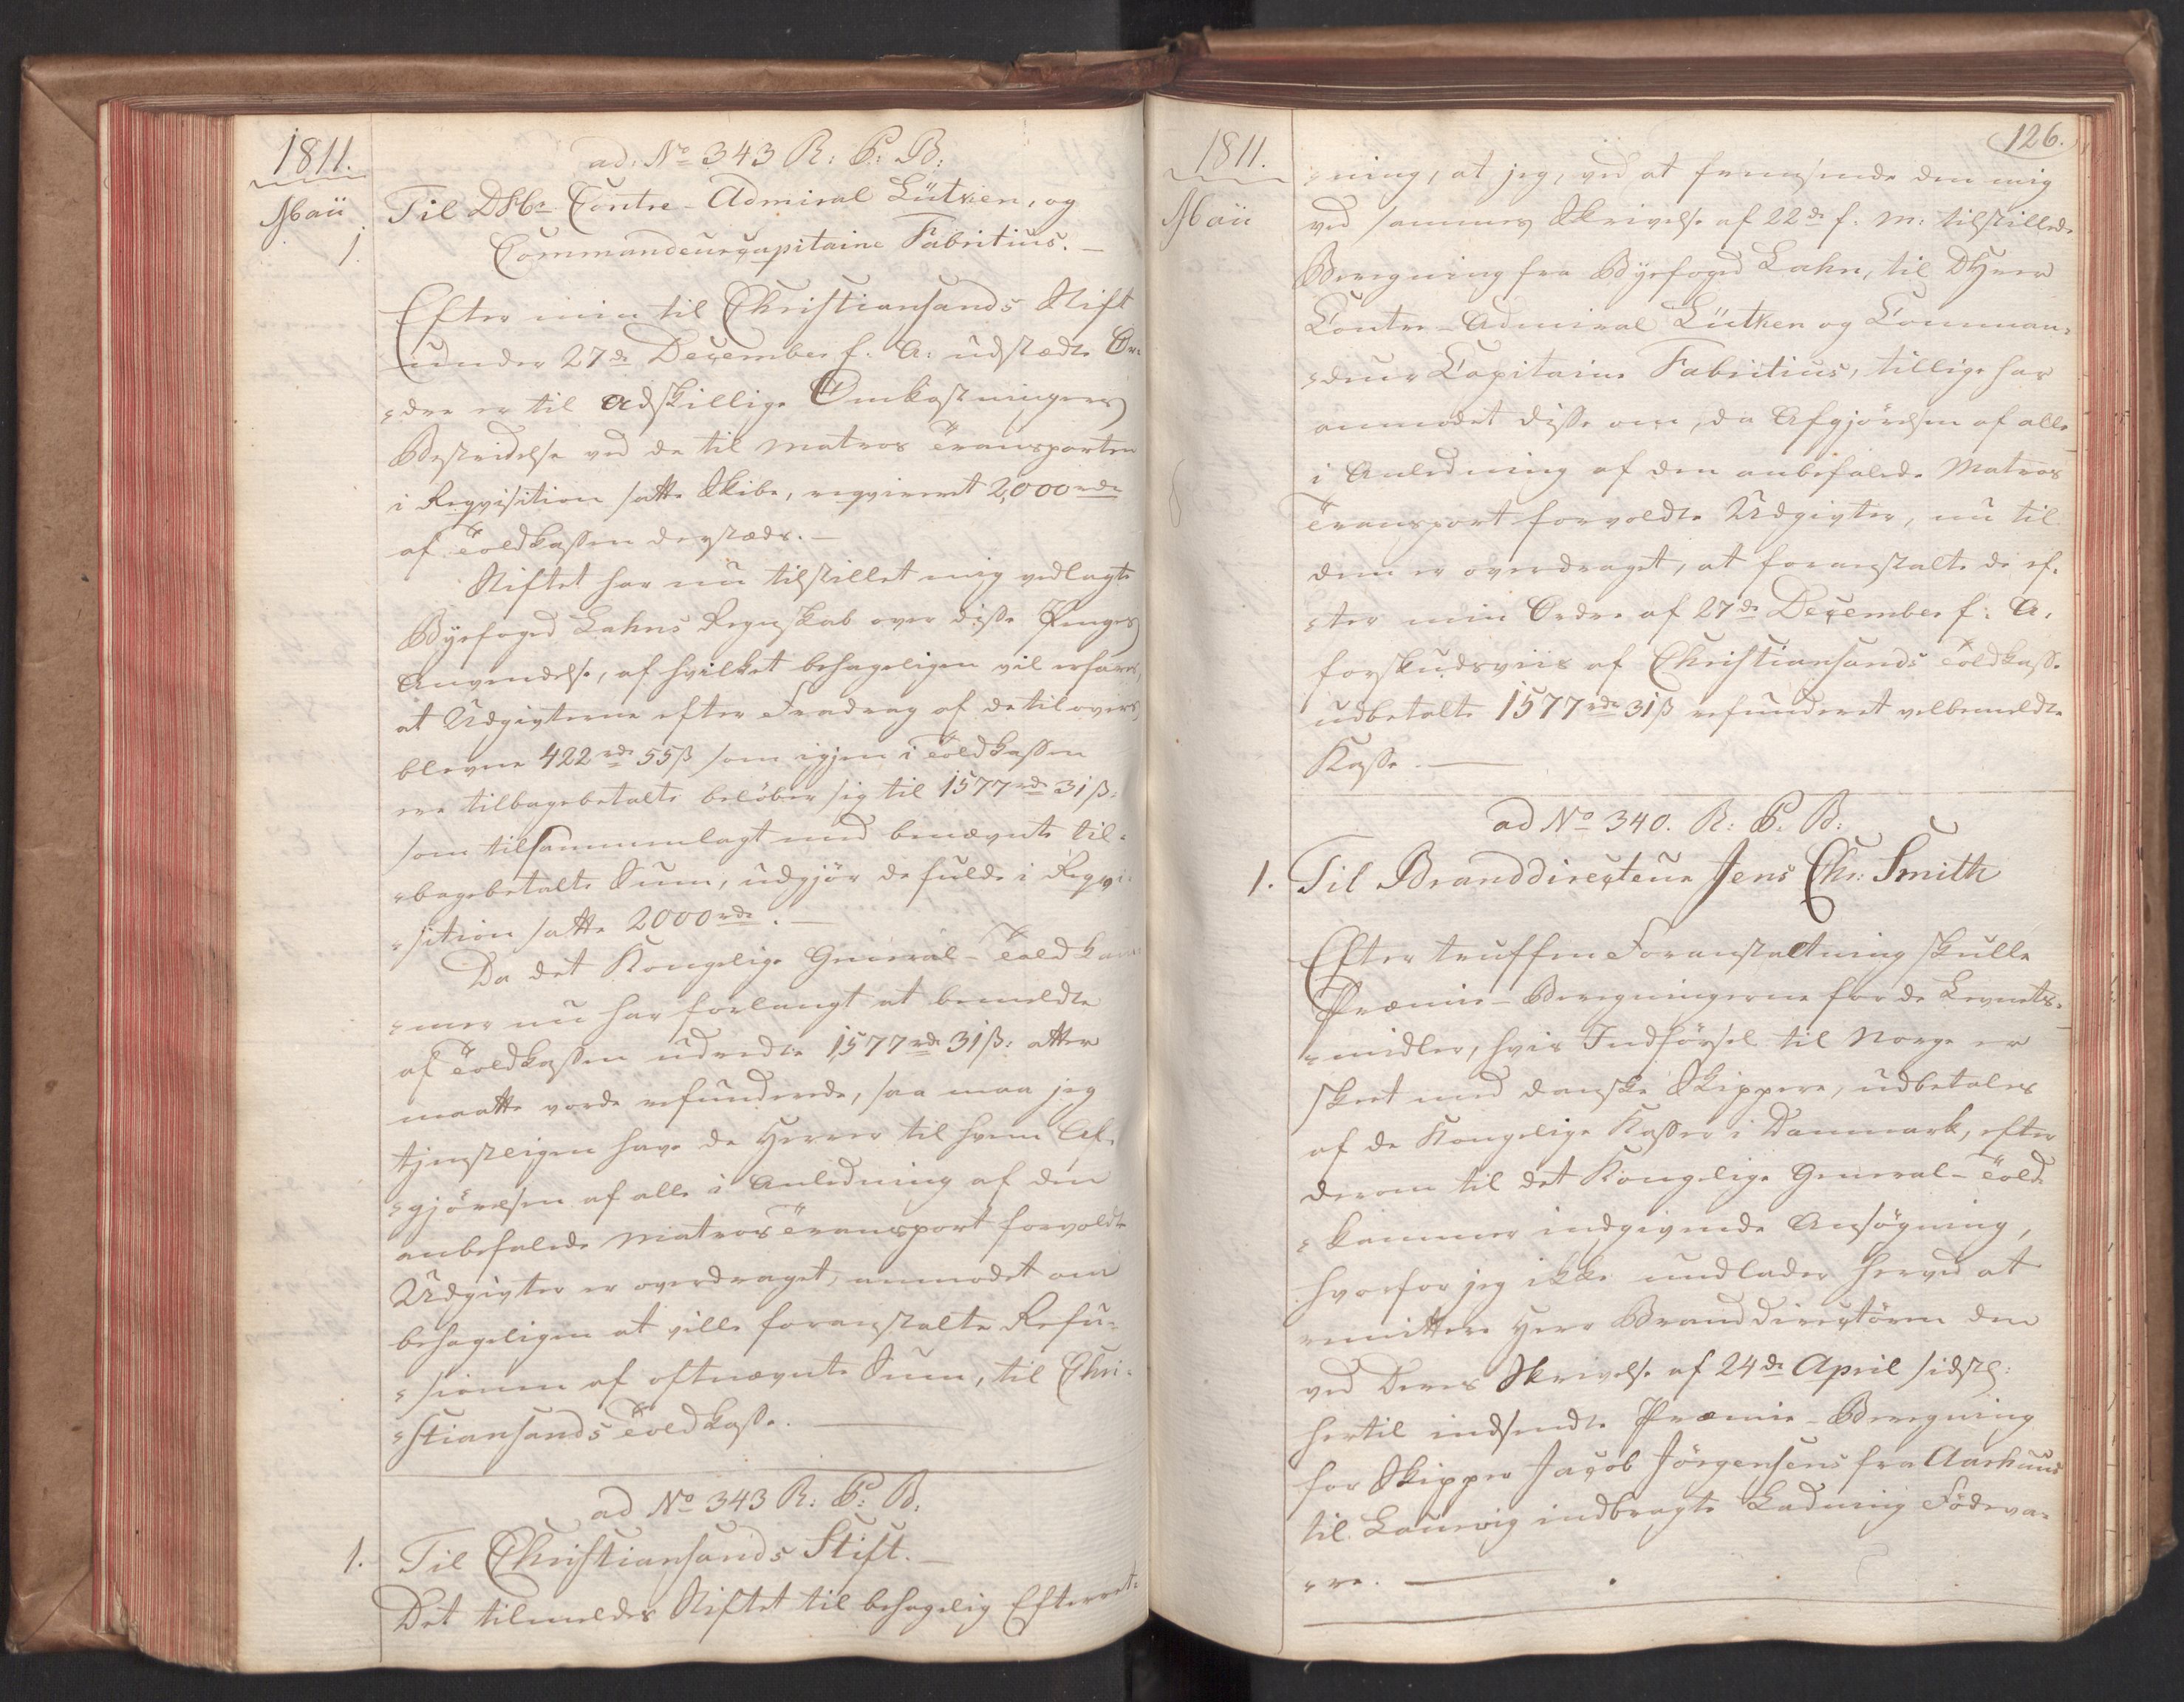 1811.
Maii
1.
ad: No 343 R: P: B:
Til DHr. Contre-Admiral Lütken, og
Commandeurcapitaine Fabritius.
Efter min til Christiansands Stift
under 27de December f: A: udstædte Or-
dre er til adskillige Omkostningers
Bestridelse ved de til Matros Transporten
i Reqvisition satte Skibe, reqvireret 2,000 rdr
af Toldkassen dersteds.
Stiftet har nu tilstillet mig vedlagte
Byefoged Lahns Regnskab over disse Penges
Anvendelse, af hvilket behageligen vil erfares,
at Udgivterne efter Fradrag af de tilovers
blevne 422 rdr 55 ß som igjen i Toldkassen
ere tilbagebetalte beløber sig til 1577 rdr 31 ß.
som tilsammenlagt med benævnte til-
bagebetalte Sum, udgjør de fulde i Reqvi-
sition satte 2000 rdr.
Da det Kongelige General-Toldkam-
mer nu har forlangt at bemeldte
af Toldkassen udredte 1577 rdr 31 ß: atter
maatte vorde refunderede, saa maa jeg
tjenstligen have de Herrer til hvem Af-
gjørelsen af alle i Anledning af den
anbefalede Matros Transport forvoldte
Udgivter er overdraget, anmodet om
behageligen at ville foranstalte Refu-
sionen af oftnævnte Sum, til Chri-
stiansands Toldkasse.
ad No 343 R: P: B.
1. Til Christiansands Stift.
Det tilmeldes Stiftet til behagelig Efterret-
126.
1811.
Maii
ning, at jeg, ved at fremsende den mig
ved sammes Skrivelse af 22de f: M: tilstillede
Beregning fra Byefoged Lahn, til DHerr
Contre-Admiral Lütken og Comman-
deur Capitaine Fabritius, tillige har
anmodet disse om, da Afgjørelsen af alle
i Anledning af den anbefalede Matros
Transport forvoldte Udgivter, nu til
dem er overdraget, at foranstalte de ef-
ter min Ordre af 27de December f: A.
forskudsviis af Christiansands Toldkasse
udbetalte 1577 rdr 31 ß refunderet velbemeldte
Kasse.
ad No 340. R: P: B:
1. Til Branddirecteur Jens Chr: Smith
Efter truffen Foranstaltning skulle
Præmie-Beregningerne for de Levnets-
midler, hvis Indførsel til Norge er
skeet med danske Skippere, udbetales
af de Kongelige Kasser i Danmark, efter
derom til det Kongelige General-Told-
kammer indgivende Ansøgning,
hvorfor jeg ikke undlader herved at
remittere Herr Branddirectøren den
ved Deres Skrivelse af 24de April sidstl:
hertil indsendte Præmie-Beregning
for Skipper Jacob Jörgensens fra Aarhuus
til Laurvig indbragte Ladning Fødeva-
re.